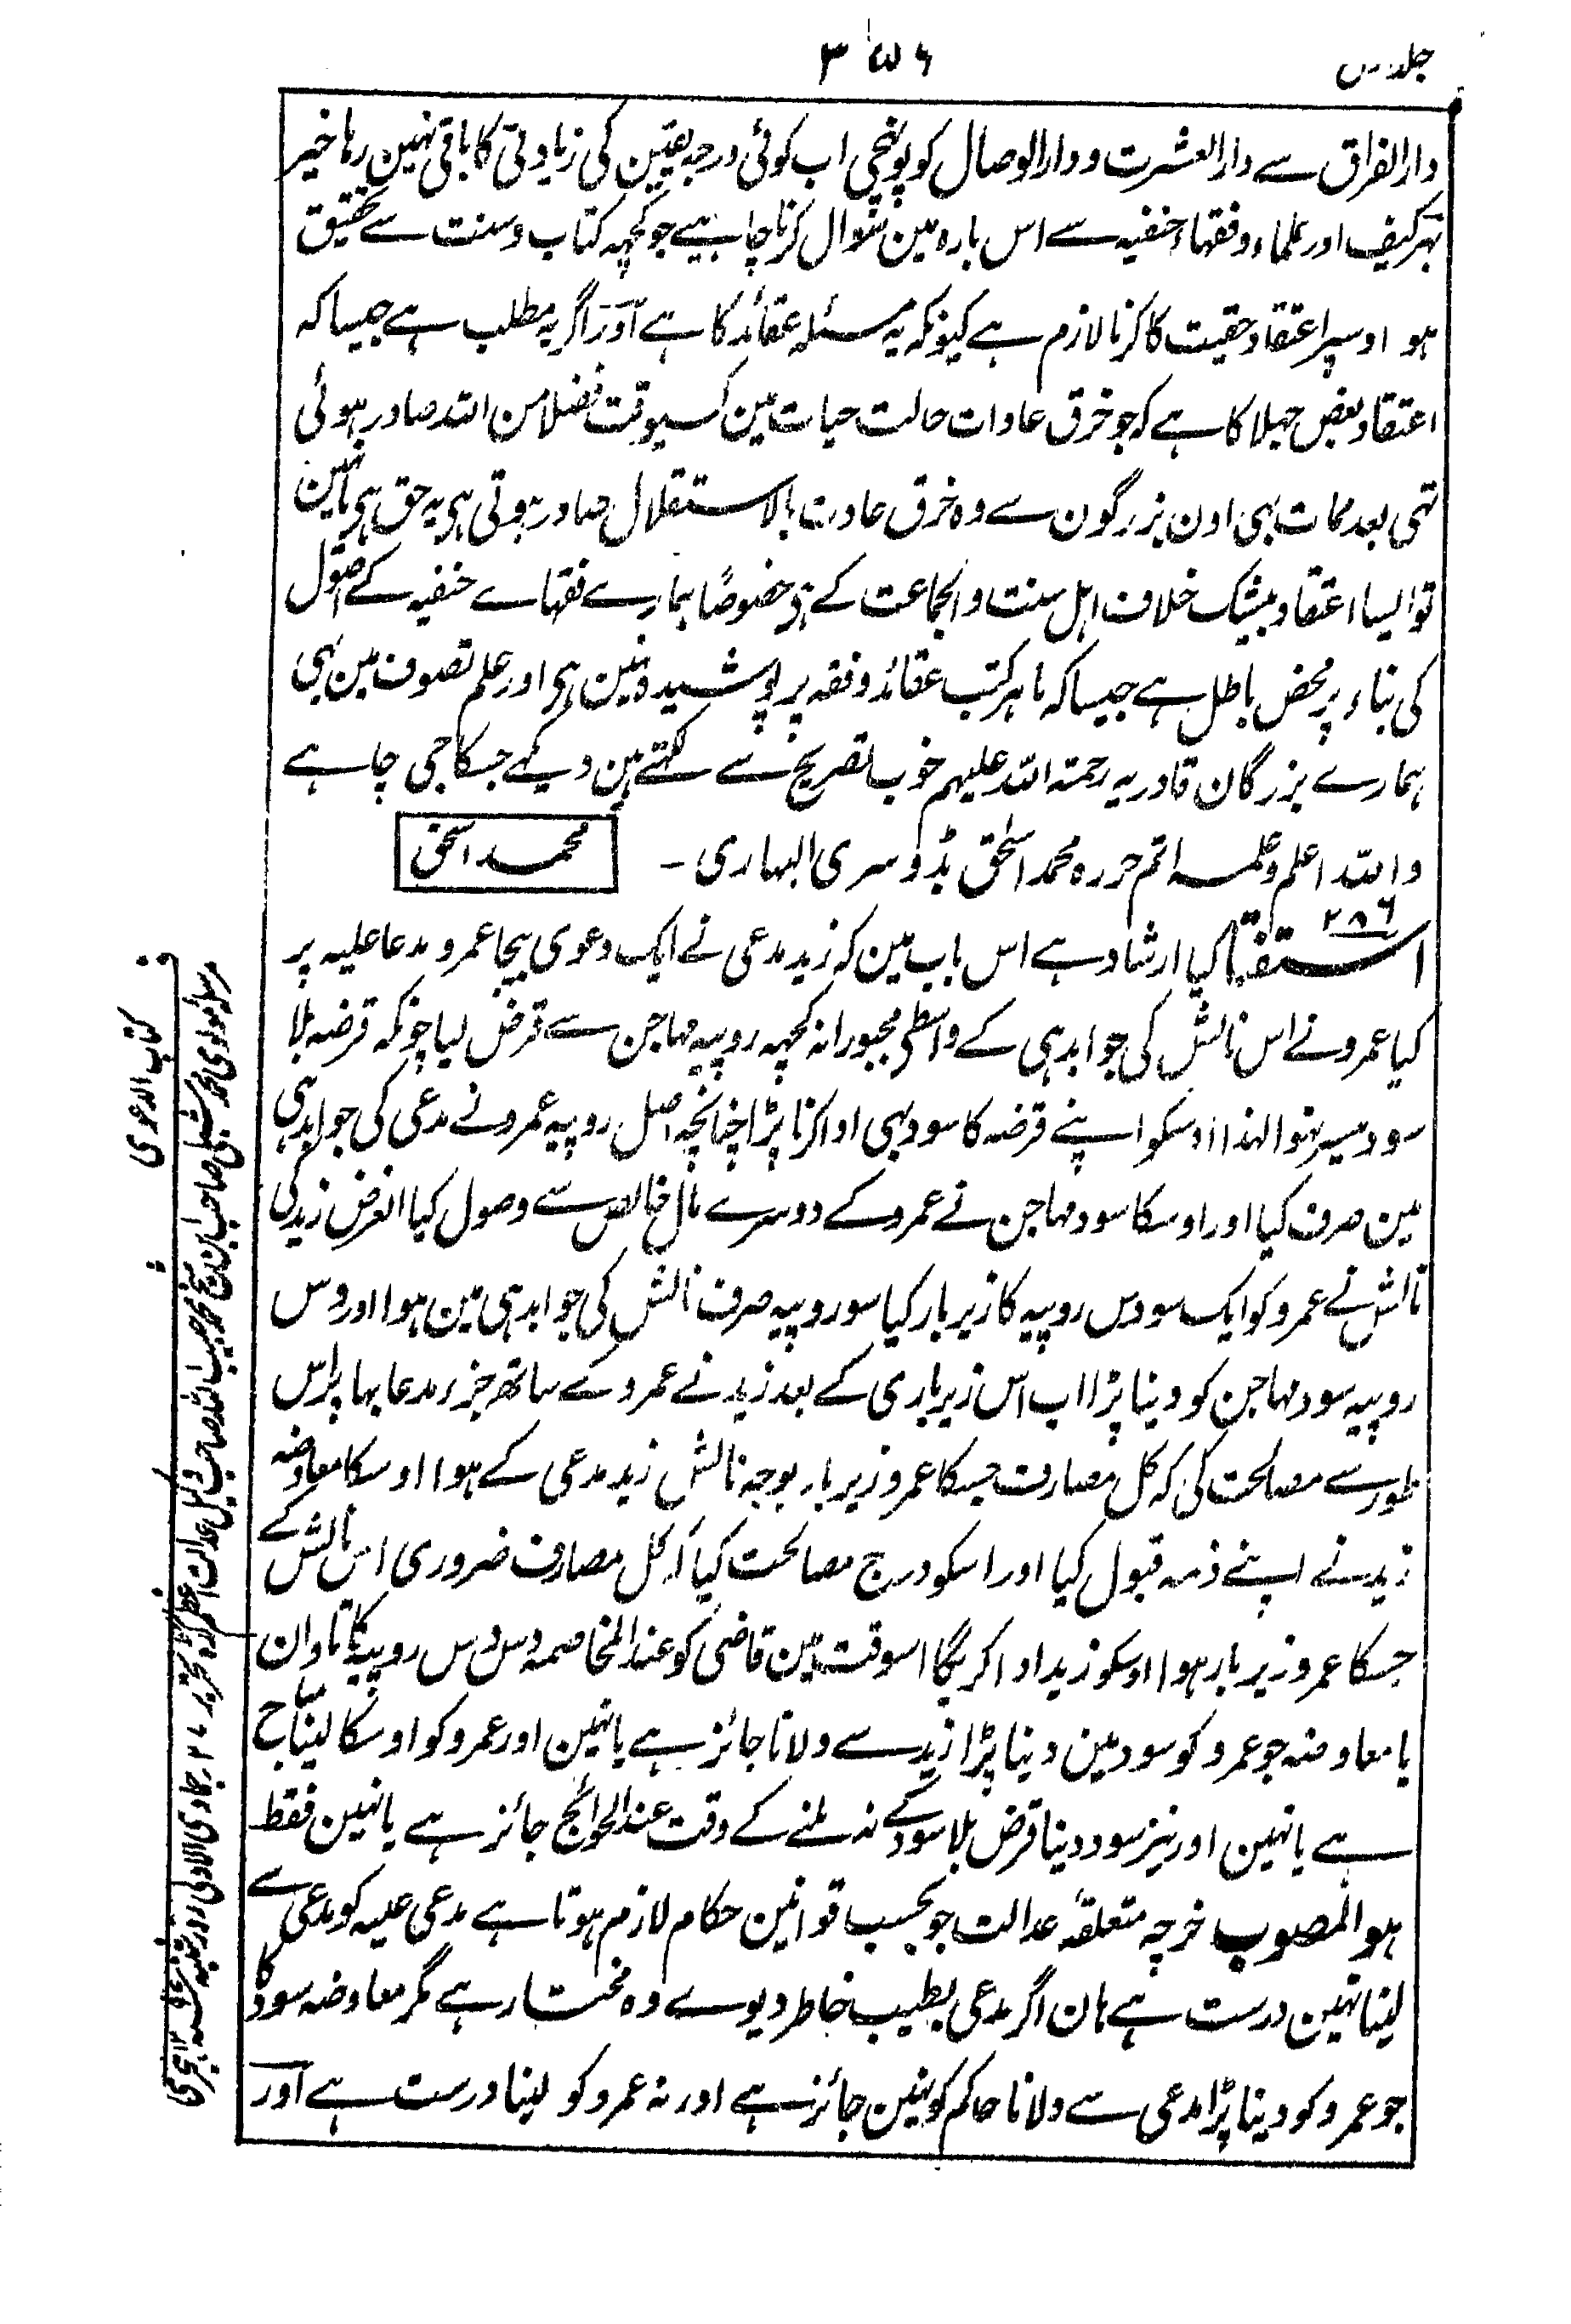 جلد س
۳۵۶
دارالفراق سے دارالعشرت و دارالوصال کو پونچی اب کوئی درجہ یقین کی زیادتی کا باقی نہین رہا خیر
بہرکیف اور علماء و فقہاء حنفیہ سے اس بارہ مین سوال کرنا چاہیے جو کچہہ کتاب و سنت سے تحقیق
ہو اوسپر اعتقاد حقیت کا کرنا لازم ہے کیونکہ یہ مسئلہ عقائد کا ہے اور اگر یہ مطلب ہے جیسا کہ
اعتقاد بعض جہلا کا ہے کہ جو خرق عادات حالت حیات مین کسیوقت فضلا من اللہ صادر ہوئی
تھی بعد ممات بہی اون بزرگون سے وہ خرق عادت بالاستقلال صادر ہوتی ہی یہ حق ہی یا نہین
تو ایسا اعتقاد بیشک خلاف اہل سنت والجماعت کے ہی خصوصًا ہمارے فقہاے حنفیہ کے اصول
کی بناء پر محض باطل ہے جیسا کہ ماہر کتب عقائد و فقہ پر پوشیدہ نہین ہی اور علم تصوف مین بہی
ہمارے بزرگان قادریہ رحمتہ اللہ علیہم خوب تصریح سے لکھتے ہین دیکھے جسکا جی چاہے
واللہ اعلم وعلمہ اتم حررہ محمد اسحٰق بڈوسری البہاری ۔ محمد اسحٰق
۲۸۶
استفتا کیا ارشاد ہے اس باب مین کہ زید مدعی نے ایک دعوی بیجا عمرو مدعا علیہ پر
کیا عمرو نے اس نالش کی جوابدہی کے واسطی مجبورانہ کچہہ روپیہ مہاجن سے قرض لیا چونکہ قرضہ بلا
سود میسر نہوا لہذا اوسکو اپنے قرضہ کا سود بہی ادا کرنا پڑا چنانچہ اصل روپیہ عمرو نے مدعی کی جوابدہی
مین صرف کیا اور اوسکا سود مہاجن نے عمرو کے دوسرے مال خالص سے وصول کیا الغرض زید کی
نالش نے عمرو کو ایک سو دس روپیہ کا زیر بار کیا سو روپیہ صرف نالش کی جوابدہی مین ہوا اور دس
روپیہ سود مہاجن کو دینا پڑا اب اس زیرباری کے بعد زید نے عمرو کے ساتھ جزء مدعا بہا پر اس
طور سے مصالحت کی کہ کل مصارف جسکا عمرو زیر بار بوجہ نالش زید مدعی کے ہوا اوسکا معاوضہ
زید نے اپنے ذمہ قبول کیا اور اسکو درج مصالحت کیا کہ کل مصارف ضروری اس نالش کے
جسکا عمرو زیر بار ہوا اوسکو زید ادا کریگا اسوقت مین قاضی کو عند المخاصمہ دس دس روپیہ کا تاوان
یا معاوضہ جو عمرو کو سود مین دینا پڑا زید سے دلانا جائز ہے یا نہین اور عمرو کو اوسکا لینا مباح
ہے یا نہین اور نیز سود دینا قرض بلا سود کے نہ ملنے کے وقت عند الحوائج جائز ہے یا نہین فقط
ہو المصوب خرچہ متعلقہ عدالت جو بحسب قوانین حکام لازم ہوتا ہے مدعی علیہ کو مدعی سے
لینا نہین درست ہے ہان اگر مدعی بطیب خاطر دیوے وہ مختار ہے مگر معاوضہ سود کا
جو عمرو کو دینا پڑا مدعی سے دلانا حاکم کو نہین جائز ہے اور نہ عمرو کو لینا درست ہے اور
کتاب الدعوی
مرسلہ مولوی محمد شبلی صاحب ابن شیخ محمد حبیب اللہ صاحب وکیل عدالت اعظم گڈہ